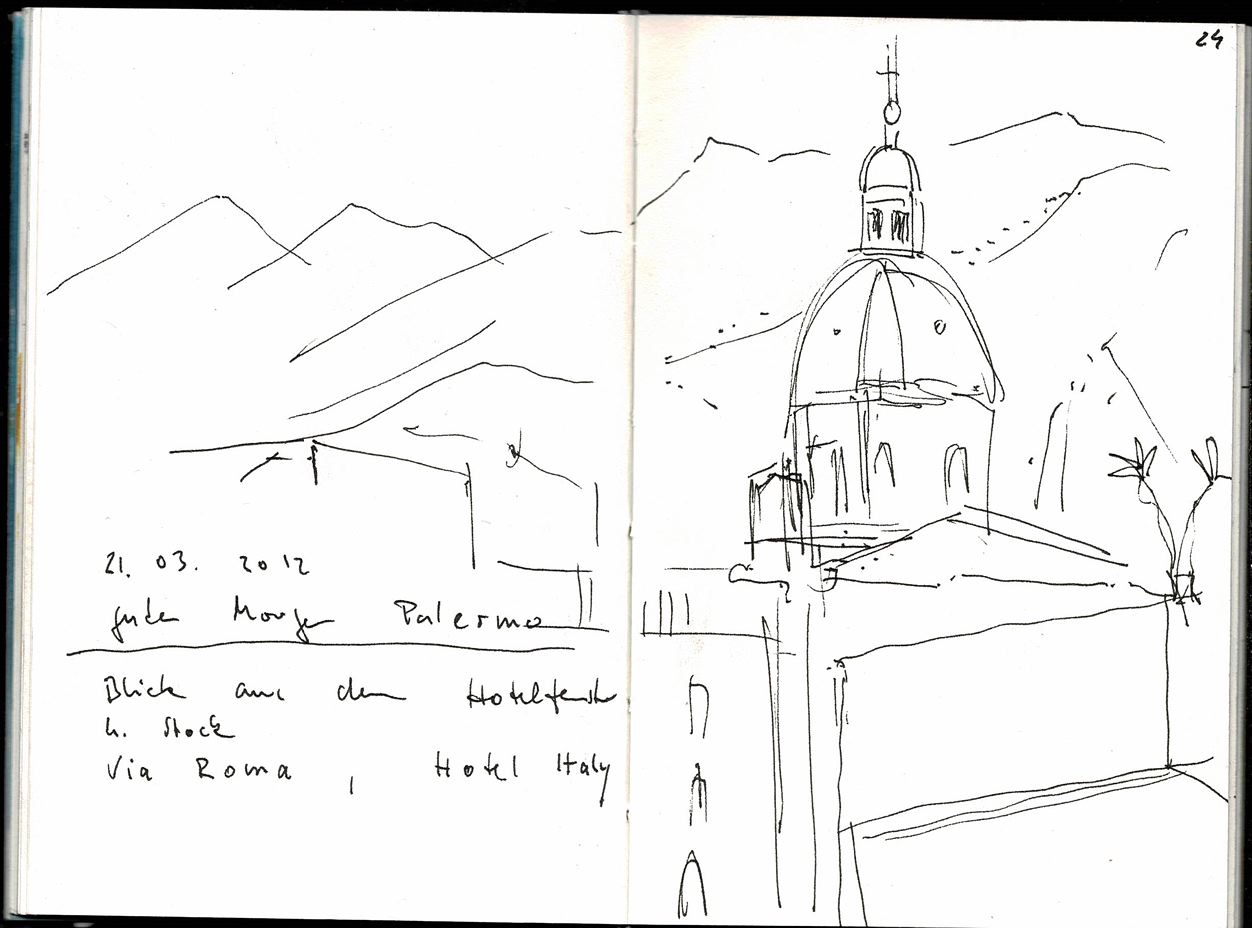 24
21. 03. 2012
guten Morgen Palermo
Blick aus dem Hotelfenster
4. Stock
Via Roma, Hotel Italy